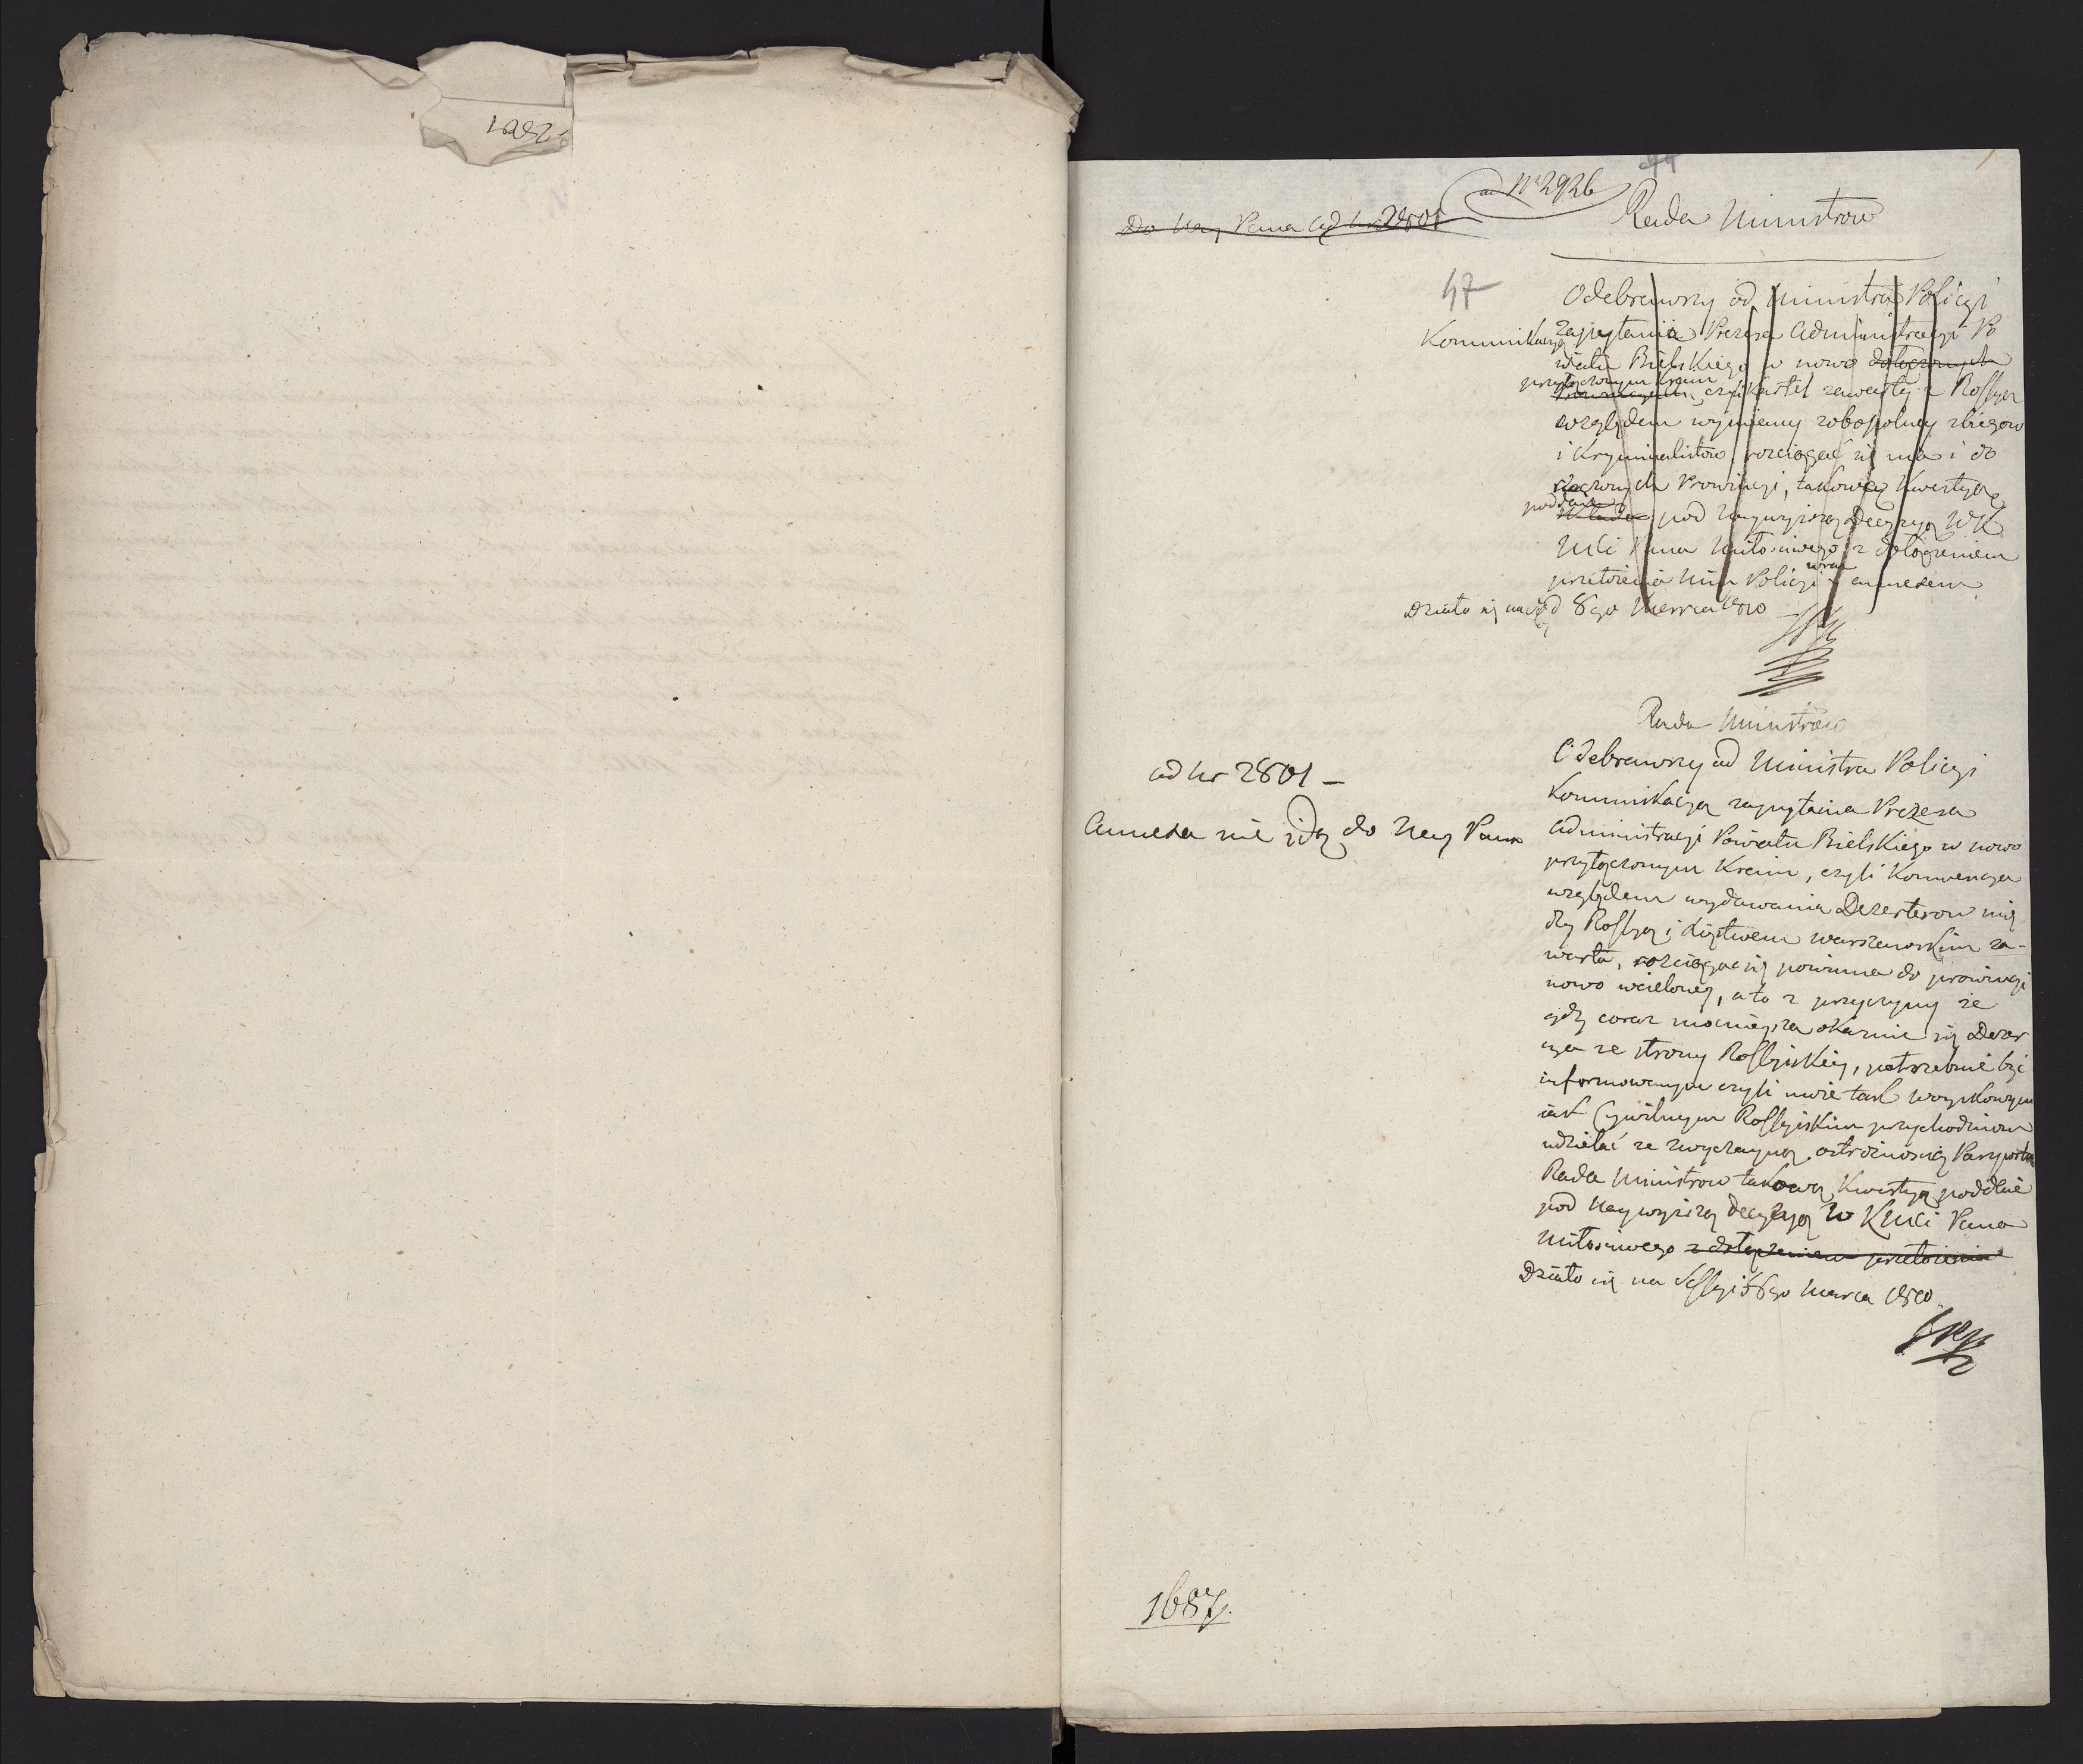 2801
44
ad Nr 2926
Do Nay Pana ad nr 2801
Rada Ministrow
47
Odebrawszy od Ministra Policyi
Kommunikacyą zapytania Prezesa Administracyi Po
wiatu Bielskiego w nowo dołączonych
przyłączonym Kraiu
czyli Kartel zawarty z Rossyą
względem wymiany zobopolney zbiegow
i Kryminalistow, rozciągać się ma i do
złączonych Prowincyi, takową kwestyą
poddaie
wkłada pod Naywyższą Decyzyą WK
Mci Pana Miłosciwego z dołączeniem
przełożenia Min Policyi wraz z annexem
Działo się na d 8go Marca 1810
Rada Ministrow
Odebrawszy od Ministra Policyi
ad nr 2801 –
Kommunikacyą zapytania Prezesa
Annexa nie idą do Nay Pana
Administracyi Powiatu Bielskiego w nowo
przyłączonym Kraiu, czyli Konwencya
względem wydawania Dezerterow mię
dzy Rossyą i Xięstwem Warszawskim za-
warta, rozciągać się powinna do prowincyi
nowo wcieloney, a to z przyczyny że
gdy coraz mocnieysza okaznie się Dezer
cya ze strony Rossyiskiey, potrzebnie być
informowanym czyli może tak woyskowym
iak Cywilnym Rossyiskim przychodniom
udzielać ze zwyczayną ostrożnoscią Paszporta
Rada Ministrow takową Kwestyą poddaie
pod Naywyższą decyzyą W KMci Pana
Miłosciwego z dołączeniem przełożenia
Działo się na Sessyi 8go Marca 1810
1687.